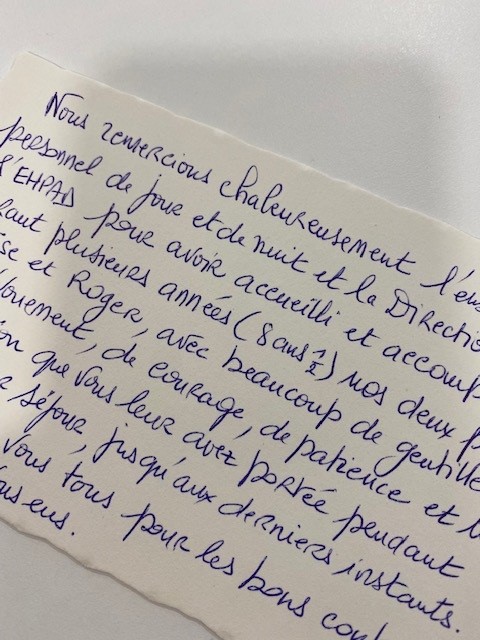 Nous remercions chaleureusement l'ens
personnel de jour et de nuit et la Directio
l'EHPAD pour avoir accueilli et accomp
rant plusieurs années (8 ans ½) nos deux p
se et Roger, avec beaucoup de gentille
vouement, de courage, de patience et l'
on que vous leur avez portée pendant
r séjour, jusqu'aux derniers instants.
vous tous pour les bons con